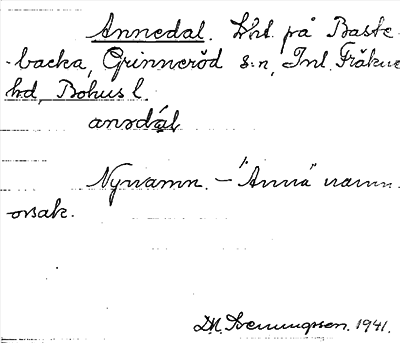 Annedal. Lht. på Baste-
-backa, Grinneröd s:n, Inl. Fräkne
hd, Bohusl.
anədál
Nynamn. - "Anna" namn-
orsak.
D.H. Svenungsson. 1941.